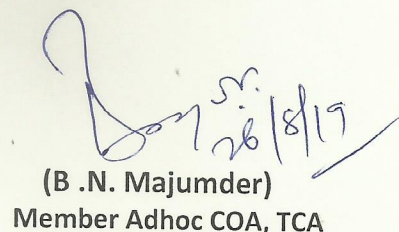 26/8/19
(B .N. Majumder)
Member Adhoc COA, TCA